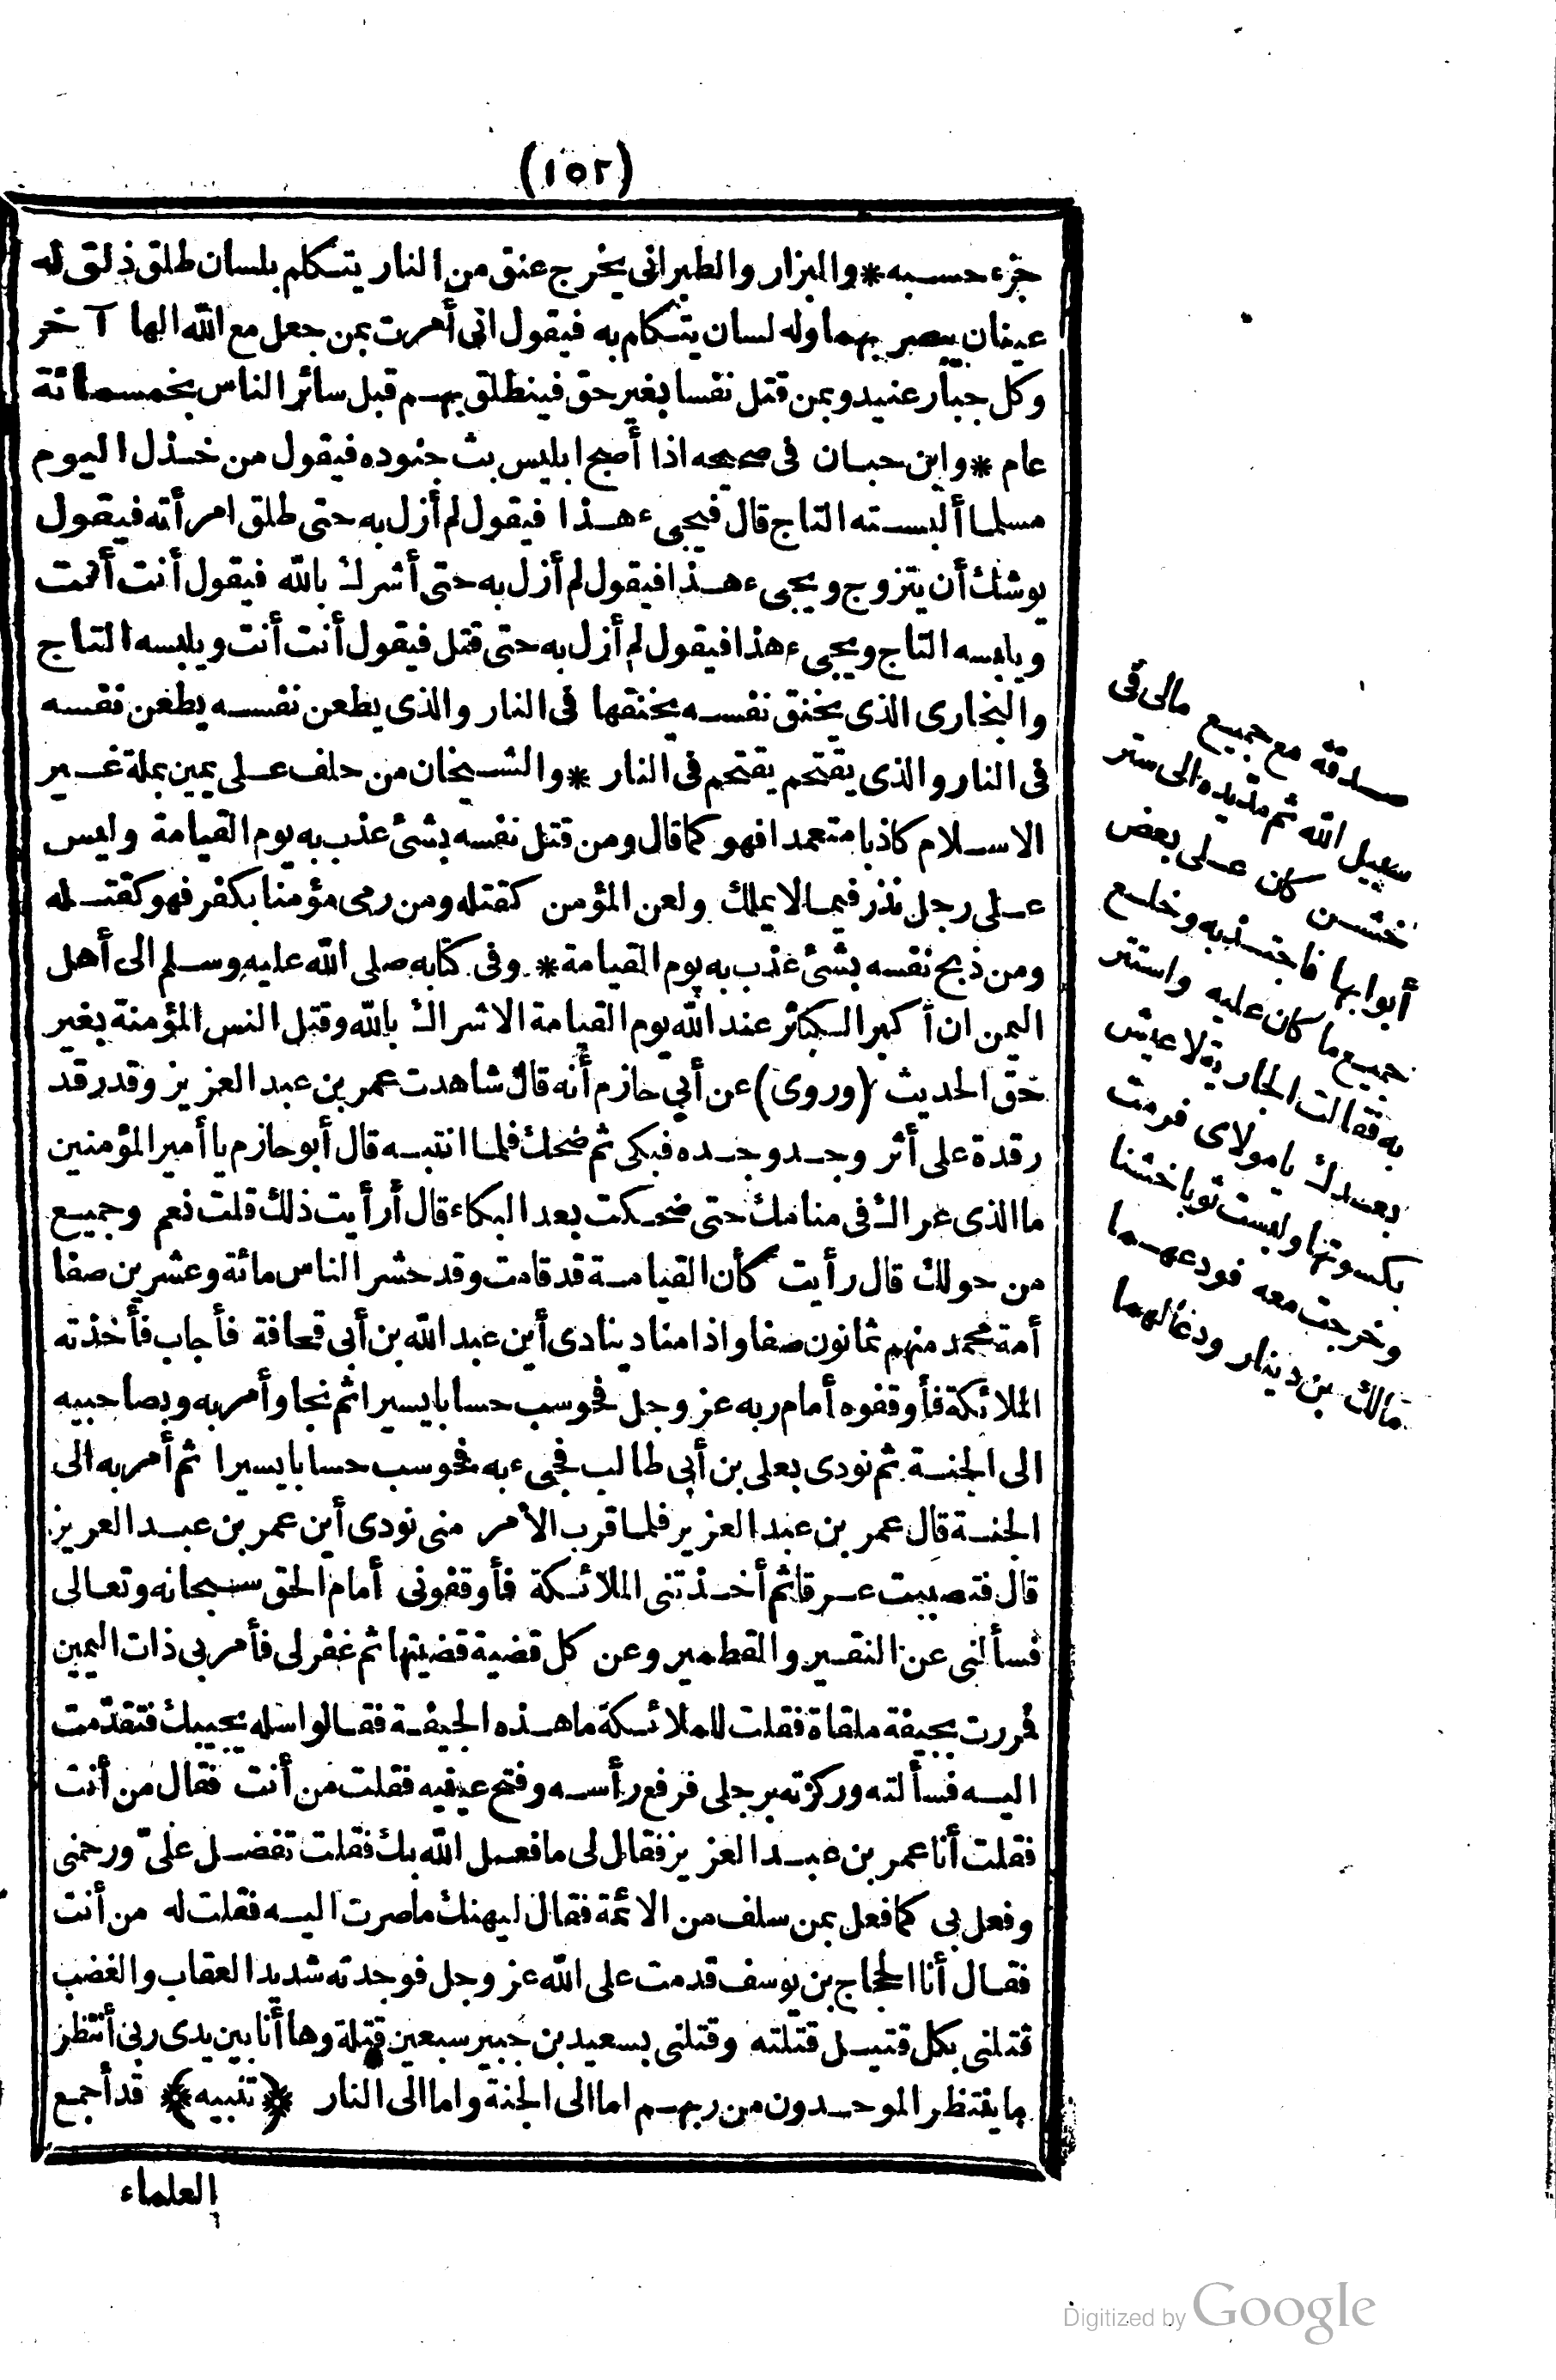 (١٥٢)
جزء حسبه * والبزار والطبرانى يخرج عنق من النار يتكلم بلسان طلق ذلق له
عينان يبصر بهما وله لسان يتكلم به فيقول انى أمرت بمن جعل مع الله الها آخر
وكل جبار عنيد وبمن قتل نفسا بغير حق فينطلق بهم قبل سائر الناس بخمسمائة
عام * وابن حبان فى صحيحه اذا أصبح ابليس بث جنوده فيقول من خذل اليوم
مسلما ألبسته التاج قال فيجىء هذا فيقول لم أزل به حتى طلق امرأته فيقول
يوشك أن يتزوج ويجىء هذا فيقول لم أزل به حتى أشرك بالله فيقول أنت أنت
ويلبسه التاج ويجىء هذا فيقول لم أزل به حتى قتل فيقول أنت أنت ويلبسه التاج
والبخارى الذى يخنق نفسه يخنقها فى النار والذى يطعن نفسه يطعن نفسه
فى النار والذى يقتحم يقتحم فى النار * والشيخان من حلف على يمين بملة غير
الاسلام كاذبا متعمدا فهو كما قال ومن قتل نفسه بشئ عذب به يوم القيامة وليس
على رجل نذر فيما لا يملك ولعن المؤمن كقتله ومن رمى مؤمنا بكفر فهو كقتله
ومن ذبح نفسه بشئ عذب به يوم القيامة * وفى كتابه صلى الله عليه وسلم الى أهل
اليمن ان أكبر الكبائر عند الله يوم القيامة الاشراك بالله وقتل النفس المؤمنة بغير
حق الحديث (وروى) عن أبي حازم أنه قال شاهدت عمر بن عبد العزيز وقد رقد
رقدة على أثر وجد وجده فبكى ثم ضحك فلما انتبه قال أبو حازم يا أمير المؤمنين
ما الذى عراك فى منامك حتى ضحكت بعد البكاء قال أرأيت ذلك قلت نعم وجميع
من حولك قال رأيت كأن القيامة قد قامت وقد حشر الناس مائة وعشرين صفا
أمة محمد منهم ثمانون صفا واذا مناد ينادى أين عبد الله بن أبى قحافة فأجاب فأخذته
الملائكة فأوقفوه أمام ربه عز وجل فحوسب حسابا يسيرا ثم نجا وأمر به وبصاحبيه
الى الجنة ثم نودى بعلى بن أبى طالب فجىء به فحوسب حسابا يسيرا ثم أمر به الى
الجنة قال عمر بن عبد العزيز فلما قرب الأمر منى نودى أين عمر بن عبد العزيز
قال فتصببت عرقا ثم أخذتنى الملائكة فأوقفونى أمام الحق سبحانه وتعالى
فسألنى عن النقير والقطمير وعن كل قضية قضيتها ثم غفر لى فأمر بى ذات اليمين
فمررت بجيفة ملقاة فقلت للملائكة ما هذه الجيفة فقالوا سله يجيبك فتقدمت
اليه فسألته وركزته برجلى فرفع رأسه وفتح عينيه فقلت من أنت فقال من أنت
فقلت أنا عمر بن عبد العزيز فقال لى ما فعل الله بك فقلت تفضل علىّ ورحمنى
وفعل بى كما فعل بمن سلف من الائمة فقال ليهنك ما صرت اليه فقلت له من أنت
فقال أنا الحجاج بن يوسف قدمت على الله عز وجل فوجدته شديد العقاب والغضب
قتلنى بكل قتيل قتلته وقتلنى بسعيد بن جبير سبعين قتلة وها أنا بين يدى ربى أنتظر
ما ينتظر الموحدون من ربهم اما الى الجنة واما الى النار ﴿تنبيه﴾ قد أجمع
العلماء
صدقة مع جميع مالى فى
سبيل الله ثم مد يده الى ستر
خشن كان على بعض
أبوابها فاجتذبه وخلع
جميع ما كان عليه واستتر
به فقالت الجارية لا عيش
بعدك يا مولاى فرمت
بكسوتها ولبست ثوبا خشنا
وخرجت معه فودعهما
مالك بن دينار ودعا لهما
Digitized by Google